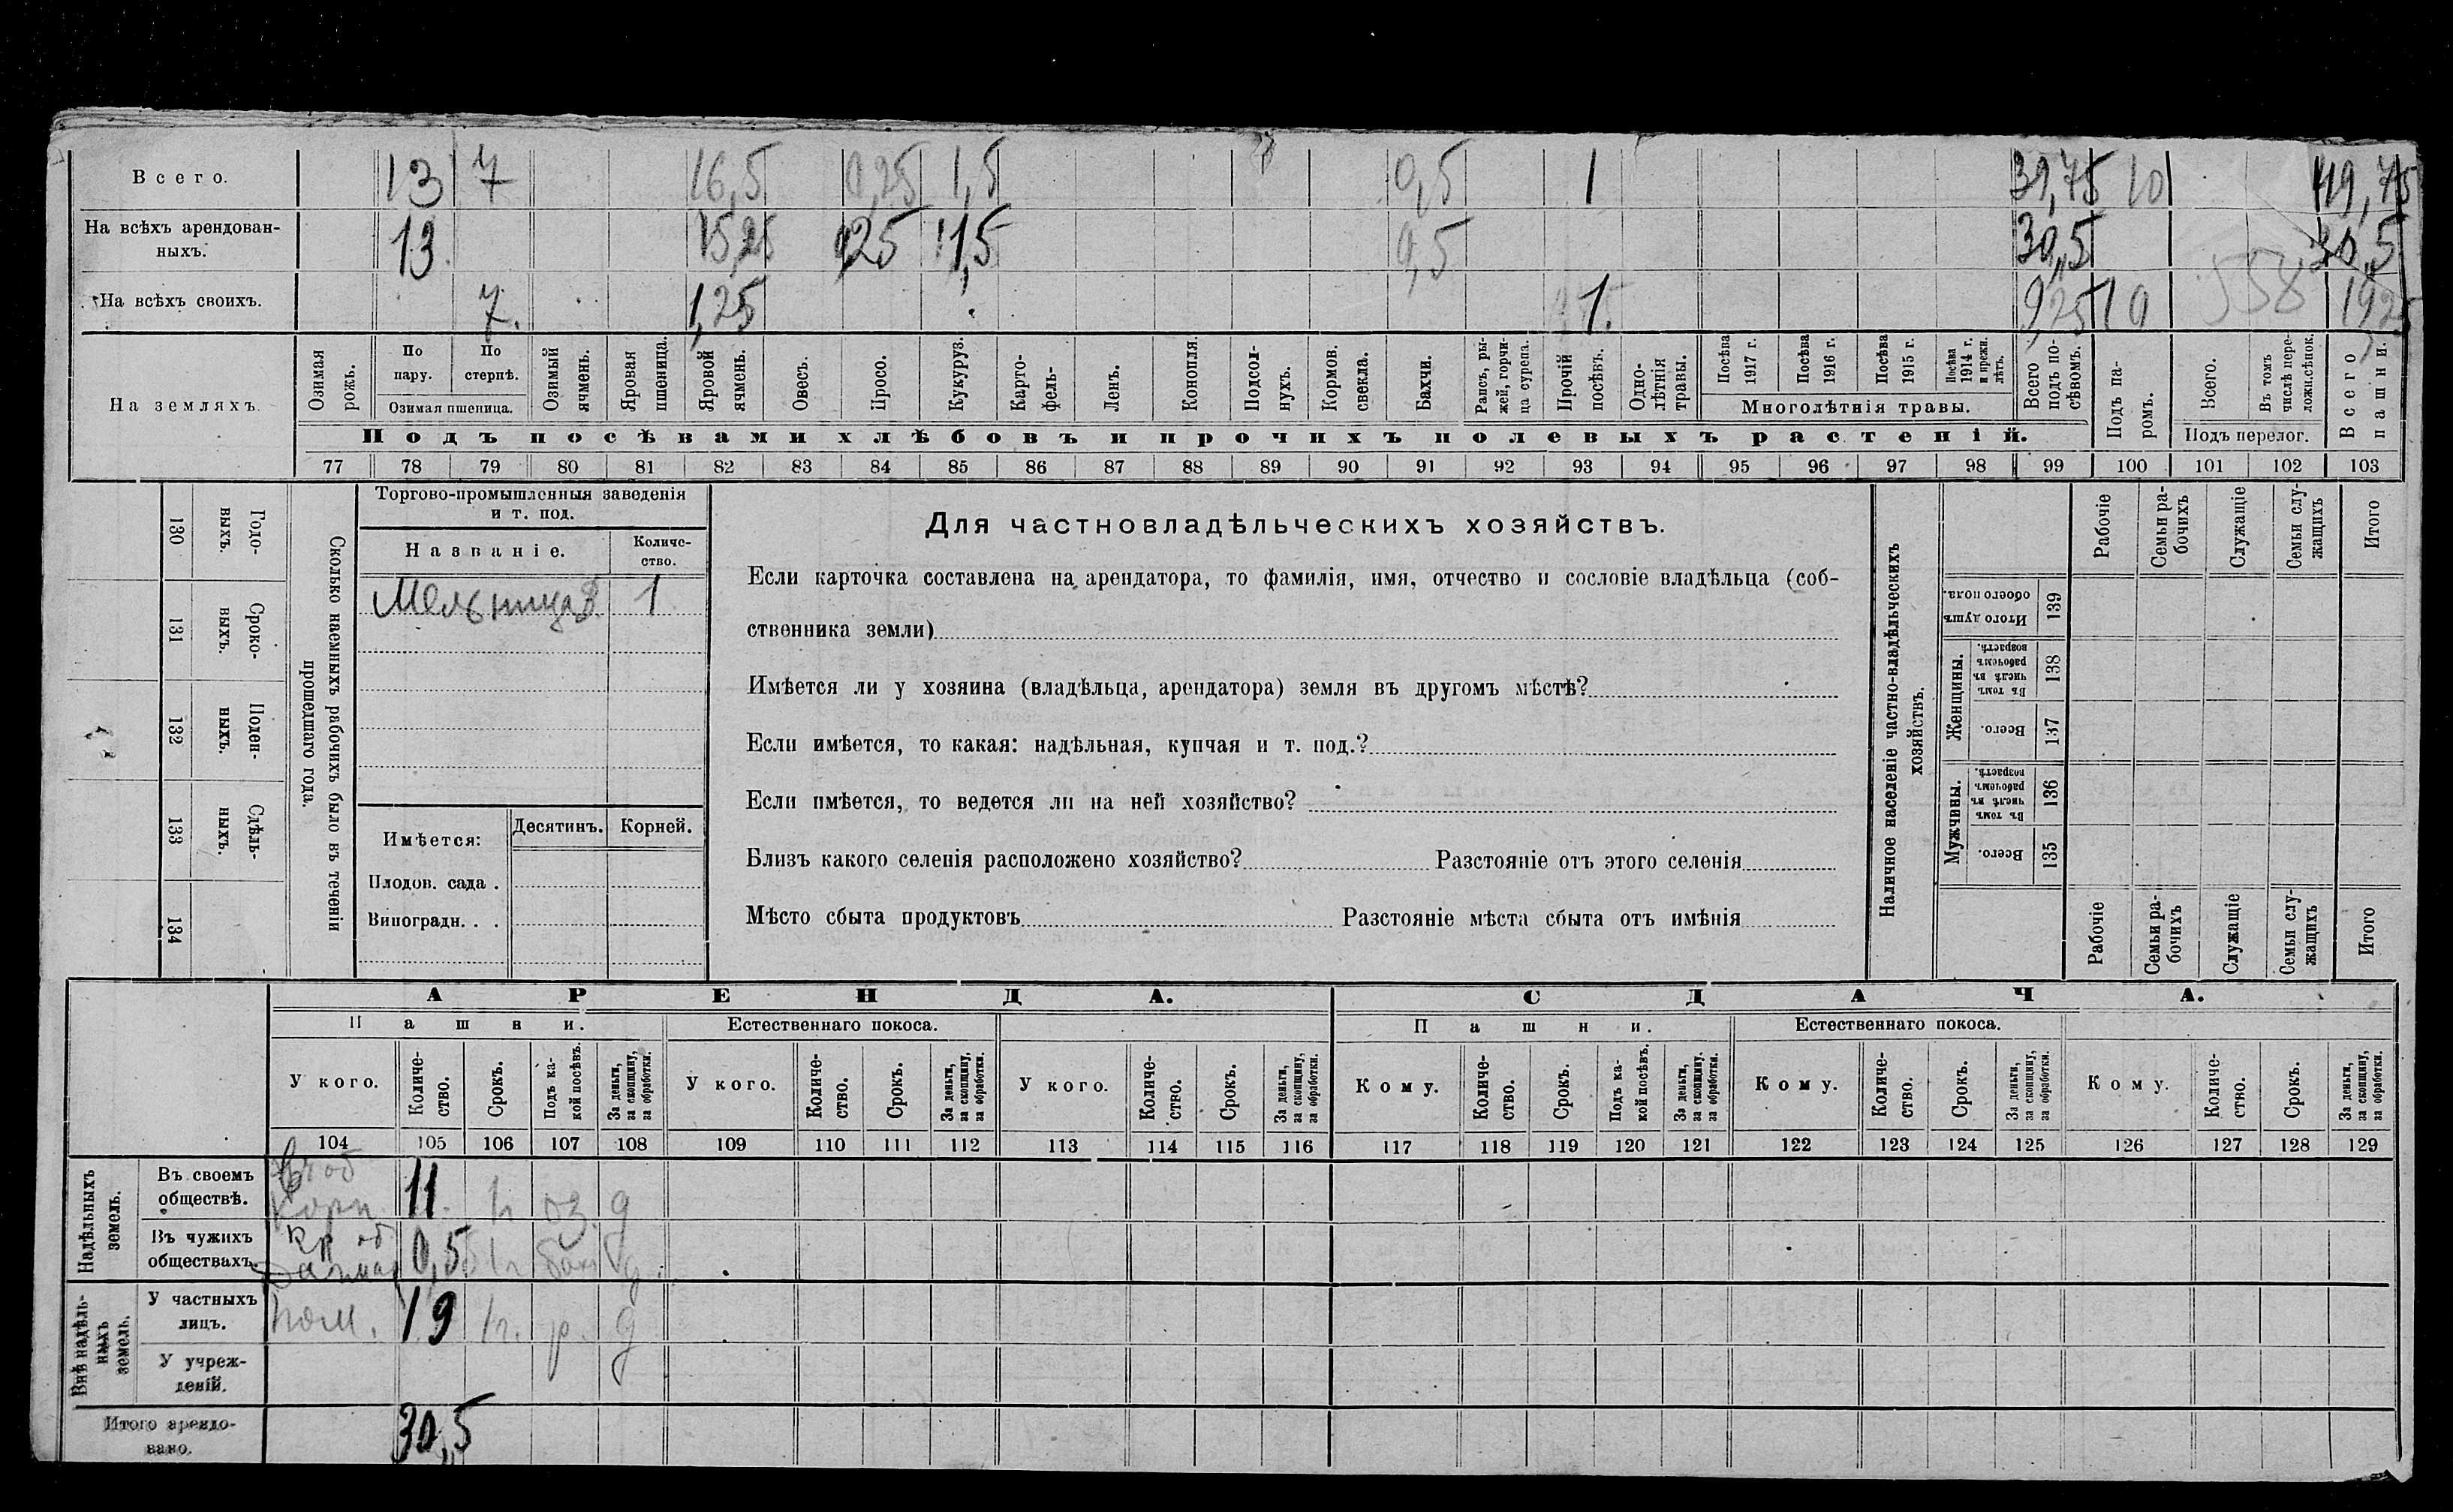 Всего. 13 7 16,5 0,25 1,5 0,5 1 39,75 10 49,75
На всѣхъ арендован-
ныхъ. 13 15,25 0,25 1,5 0,5 30,5 30,5
На всѣхъ своихъ. 7. 1,25 1. 9,25 10 558 19,25
На земляхъ.
Озимая рожь.
По пару.
По стернѣ.
Озимая пшеница.
Озимый ячмень.
Яровая пшеница.
Яровой ячмень.
Овесъ.
Просо.
Кукуруз.
Карто-
фель.
Ленъ.
Конопля.
Подсол-
нухъ.
Кормов.
свекла.
Бахчи.
Рапсъ, ры-
жей, горчи-
ца сурепа.
Прочій посѣвъ.
Одно-
лѣтнія травы.
Посѣва 1917 г.
Посѣва 1916 г.
Посѣва 1915 г.
Посѣва 1914 г. и прежн. лѣтъ.
Многолѣтнія травы.
Всего подъ по-
сѣвомъ.
Подъ па-
ромъ.
Всего.
Въ томъ числѣ пере-
ложн.сѣнок.
Подъ перелог.
Всего пашни.
Подъ посѣвами хлѣбовъ и прочихъ полевыхъ растеній.
77 78 79 80 81 82 83 84 85 86 87 88 89 90 91 92 93 94 95 96 97 98 99 100 101 102 103
Сколько наемныхъ рабочихъ было въ теченіи
прошедшаго года.
Годо-
выхъ.
130
Сроко-
выхъ.
131
Поден-
ныхъ.
132
Сдѣль-
ныхъ.
133
134
Торгово-промышленныя заведенія
и т. под.
Названіе.
Количе-
ство.
Мельница 1
Имѣется: Десятинъ. Корней.
Плодов. сада .
Виноградн. . .
Для частновладѣльческихъ хозяйствъ.
Если карточка составлена на арендатора, то фамилія, имя, отчество и сословіе владѣльца (соб-
ственника земли)
Имѣется ли у хозяина (владѣльца, арендатора) земля въ другомъ мѣстѣ?
Если имѣется, то какая: надѣльная, купчая и т. под.?
Если имѣется, то ведется ли на ней хозяйство?
Близъ какого селенія расположено хозяйство? Разстояніе отъ этого селенія
Мѣсто сбыта продуктовъ Разстояніе мѣста сбыта отъ имѣнія
Наличное населеніе частно-владѣльческихъ
хозяйствъ.
Рабочіе
Семьи ра-
бочихъ
Служащіе
Семьи слу-
жащихъ
Итого
Итого душъ обоего пола.
139
Женщины.
Въ томъ числѣ въ рабочемъ возрастѣ.
138
Всего.
137
Мужчины.
Въ томъ числѣ въ рабочемъ возрастѣ.
136
Всего.
135
Рабочіе
Семьи ра-
бочихъ
Служащіе
Семьи слу-
жащихъ
Итого
АРЕНДА. СДАЧА.
Пашни. Естественнаго покоса. Пашни. Естественнаго покоса.
У кого.
Количе-
ство.
Срокъ.
Подъ ка-
кой посѣвъ.
За деньги,
за скопщину,
за обработки.
У кого.
Количе-
ство.
Срокъ.
За деньги,
за скопщину,
за обработки.
У кого.
Количе-
ство.
Срокъ.
За деньги,
за скопщину,
за обработки.
Кому.
Количе-
ство.
Срокъ.
Подъ ка-
кой посѣвъ.
За деньги,
за скопщину,
за обработки.
Кому.
Количе-
ство.
Срокъ.
За деньги,
за скопщину,
за обработки.
Кому.
Количе-
ство.
Срокъ.
За деньги,
за скопщину,
за обработки.
104 105 106 107 108 109 110 111 112 113 114 115 116 117 118 119 120 121 122 123 124 125 126 127 128 129
Надѣльныхъ
земель.
Въ своемъ
обществѣ. 11. оз. д
Въ чужихъ
обществахъ. 0,5 1г д.
Внѣ надѣль-
ныхъ
земель.
У частныхъ
лицъ. пом. 19 1г. р. д
У учреж-
деній.
Итого арендо-
вано. 30,5